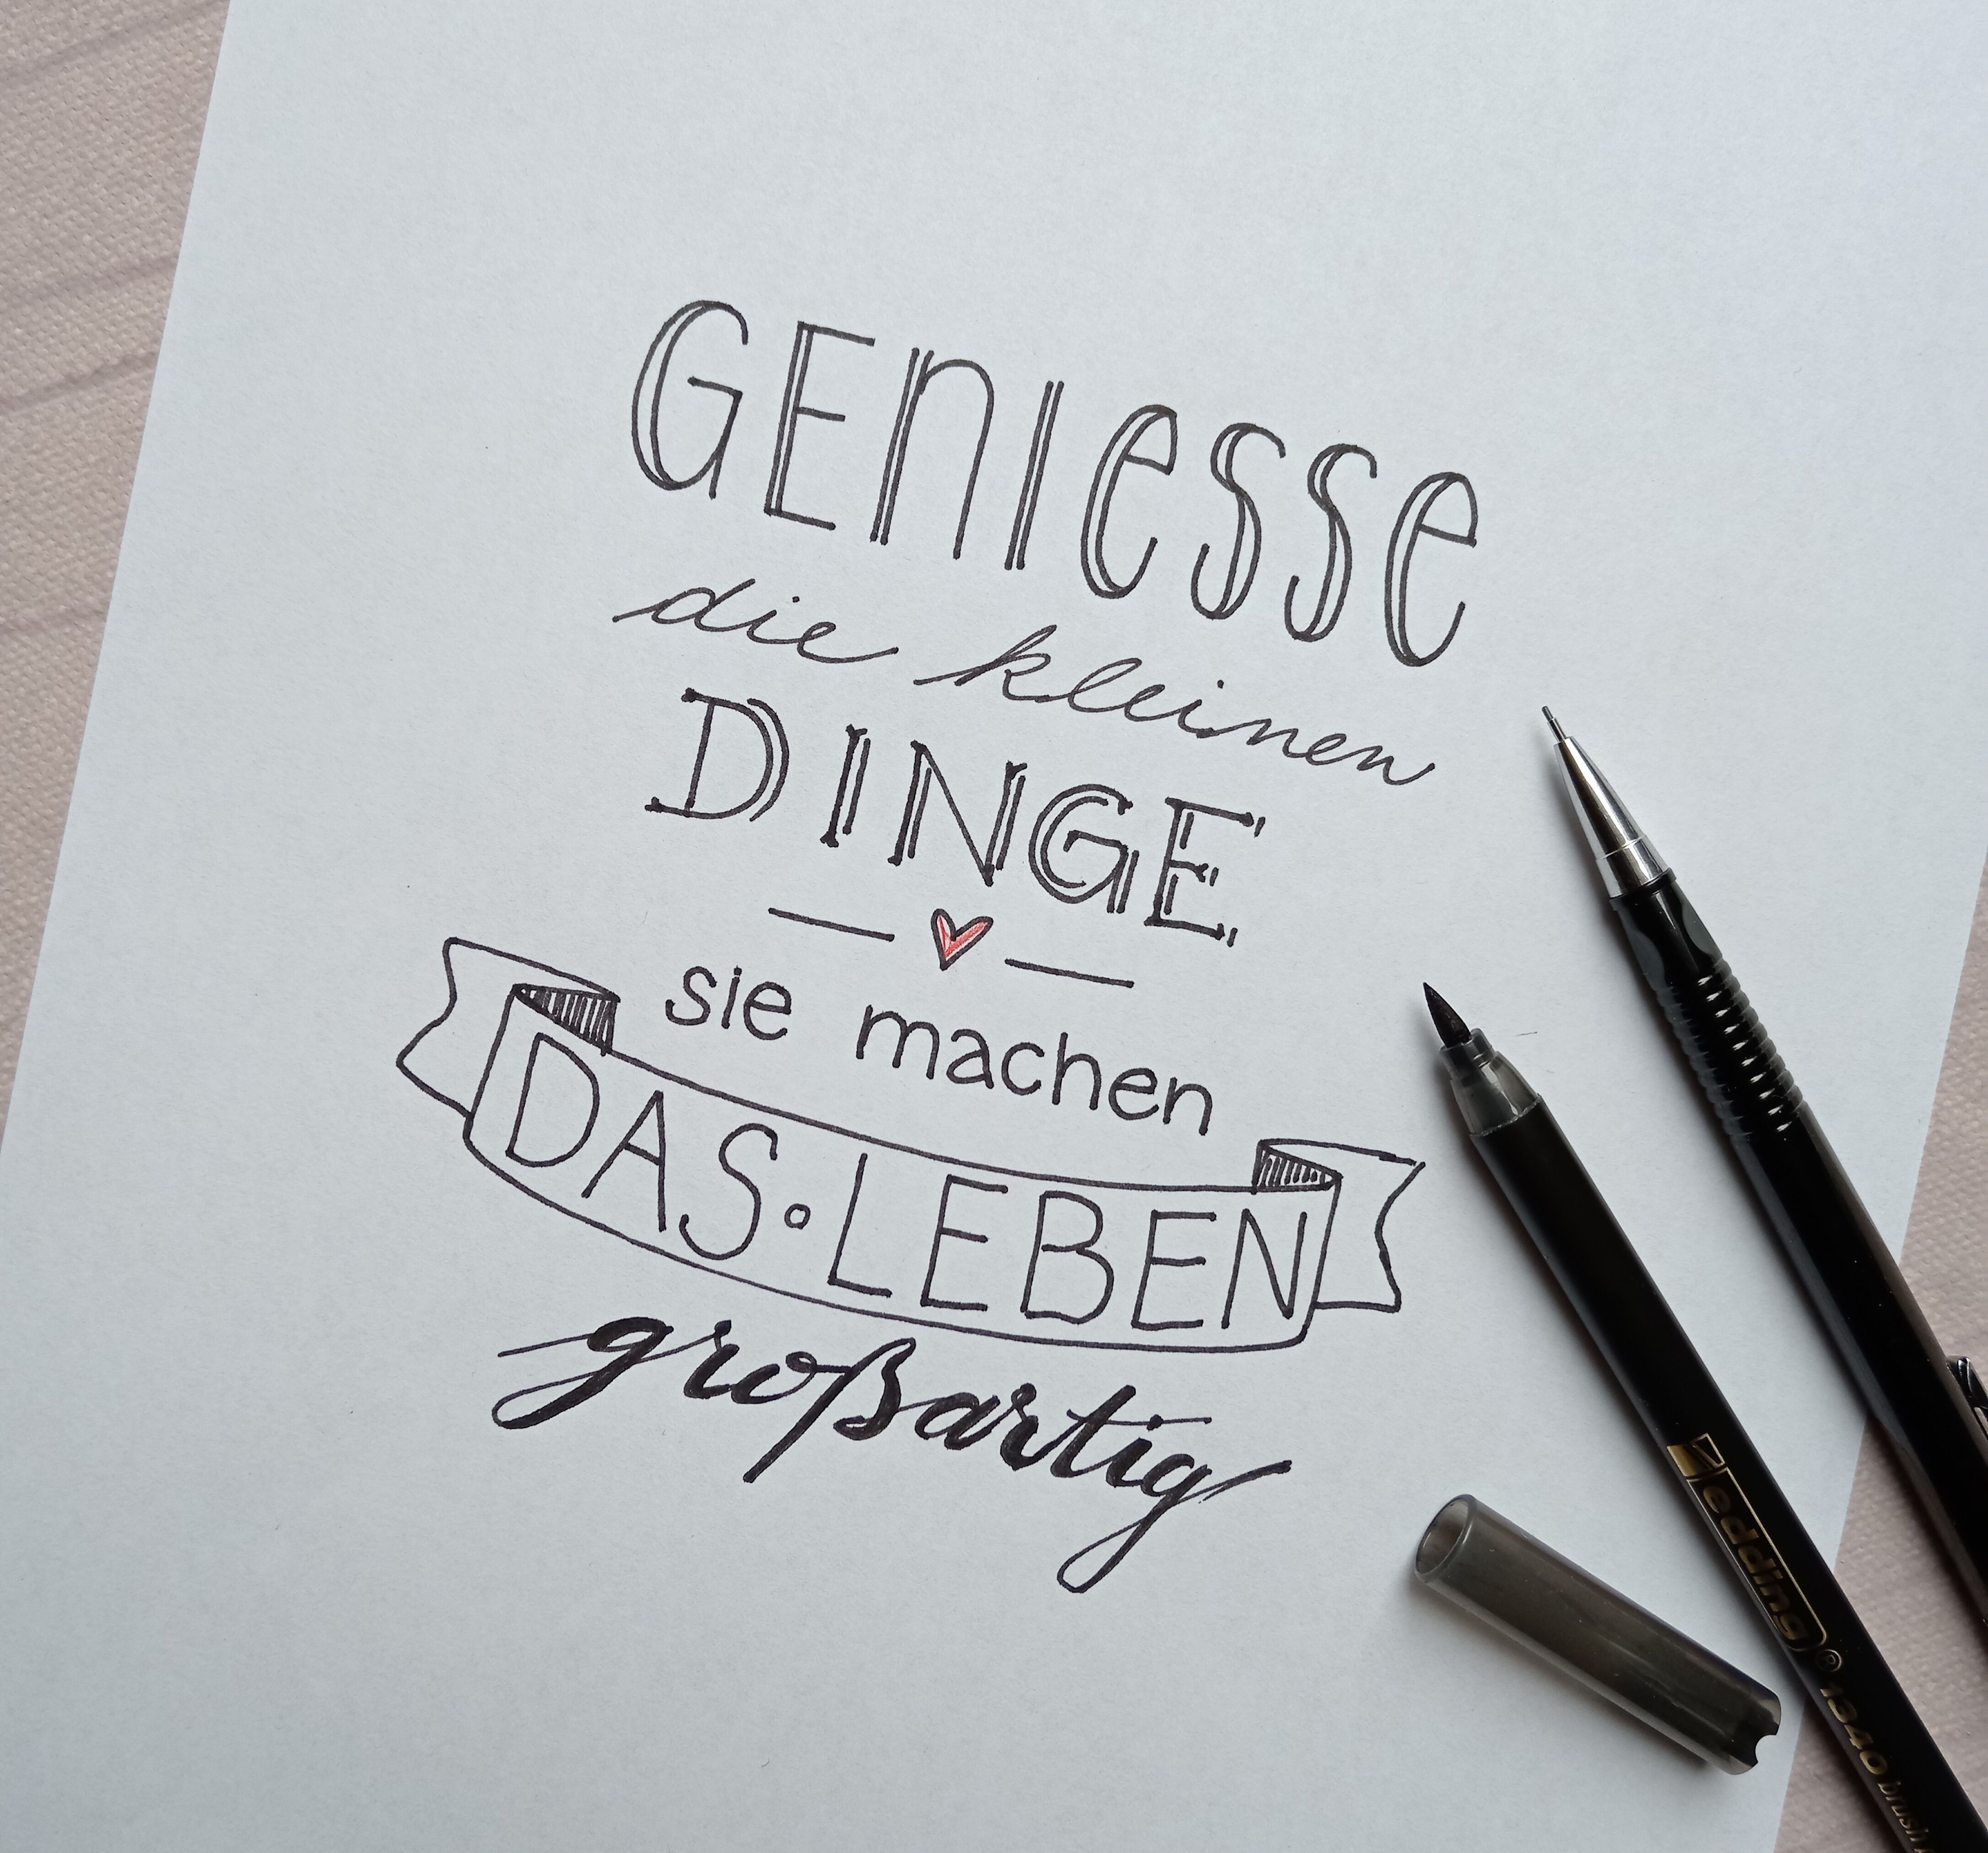 GEnIesse
die kleinen
DINGE
sie machen
DAS • LEBEN
großartig
edding® 1340 brush